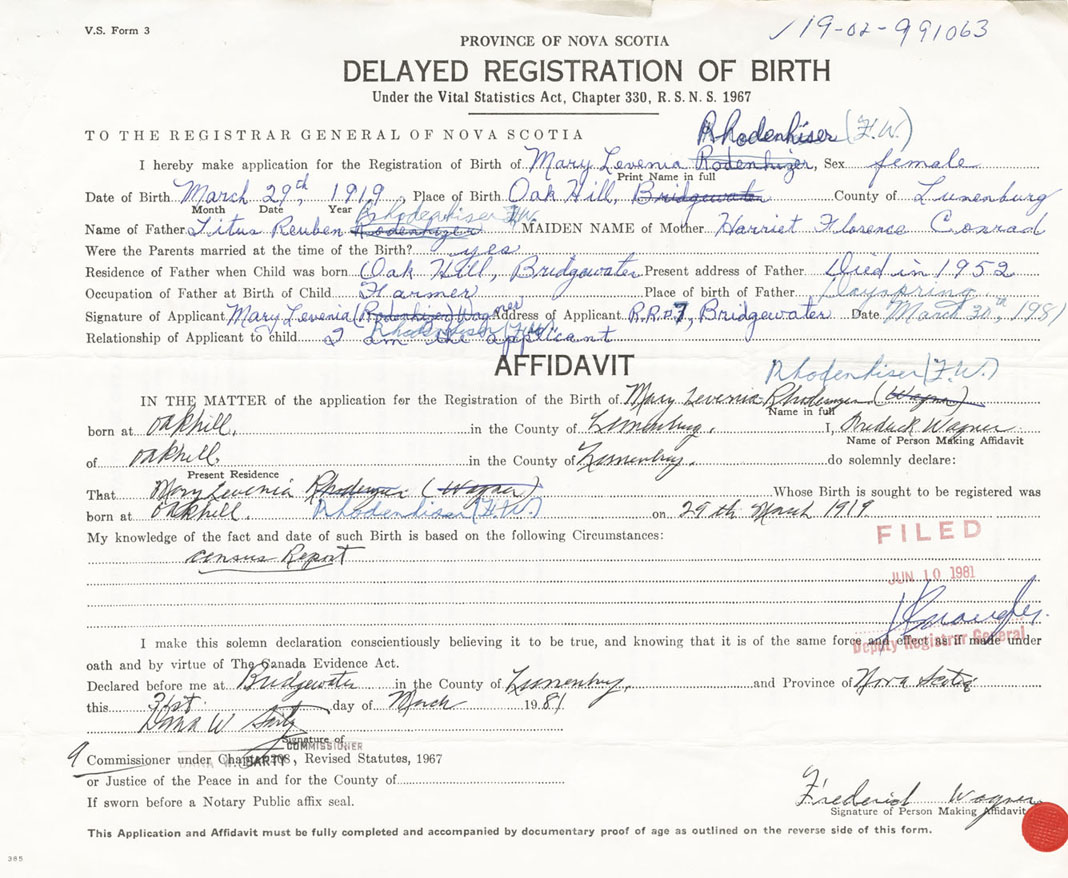 V.S. Form 3
19-02-991063
PROVINCE OF NOVA SCOTIA
DELAYED REGISTRATION OF BIRTH
Under the Vital Statistics Act, Chapter 330, R. S. N. S. 1967
TO THE REGISTRAR GENERAL OF NOVA SCOTIA
Rhodenhiser (F.W.)
I hereby make application for the Registration of Birth of Mary Levenia Rodenhizer, Sex female
Print Name in full
Date of Birth March 29th, 1919, Place of Birth Oak Hill, Bridgewater County of Lunenburg
Month Date Year Rhodenhiser F.W.
Name of Father Titus Reuben Rodenhizer MAIDEN NAME of Mother Harriet Florence Conrad
Were the Parents married at the time of the Birth? yes
Residence of Father when Child was born Oak Hill, Bridgewater Present address of Father Died in 1952
Occupation of Father at Birth of Child Farmer Place of birth of Father Dayspring
Signature of Applicant Mary Levenia (Rodenhizer) Wagner Address of Applicant R.R.#7, Bridgewater Date March 30th, 1981
Rhodenhiser (F.W.)
Relationship of Applicant to child I am the applicant
AFFIDAVIT
Rhodenhiser (F.W.)
IN THE MATTER of the application for the Registration of the Birth of Mary Levenia Rhodenizer (Wagner)
Name in full
born at oakhill. in the County of Lunenburg. I, Fredrick Wagner
Name of Person Making Affidavit
of oakhill. in the County of Lunenburg. do solemnly declare:
Present Residence
That Mary Levenia Rhodenizer (Wagner) Whose Birth is sought to be registered was
born at oakhill. Rhodenhiser (F.W.) on 29th March 1919
My knowledge of the fact and date of such Birth is based on the following Circumstances:
census Report
FILED
JUN 10 1981
I make this solemn declaration conscientiously believing it to be true, and knowing that it is of the same force and effect as if made under
Deputy Registrar General
oath and by virtue of The Canada Evidence Act.
Declared before me at Bridgewater in the County of Lunenburg, and Province of Nova Scotia
this 31st day of March 1981
Dana W
Signature of
COMMISSIONER
A Commissioner under Chapter 208, Revised Statutes, 1967
or Justice of the Peace in and for the County of
If sworn before a Notary Public affix seal.
Frederick Wagner
Signature of Person Making Affidavit
This Application and Affidavit must be fully completed and accompanied by documentary proof of age as outlined on the reverse side of this form.
385